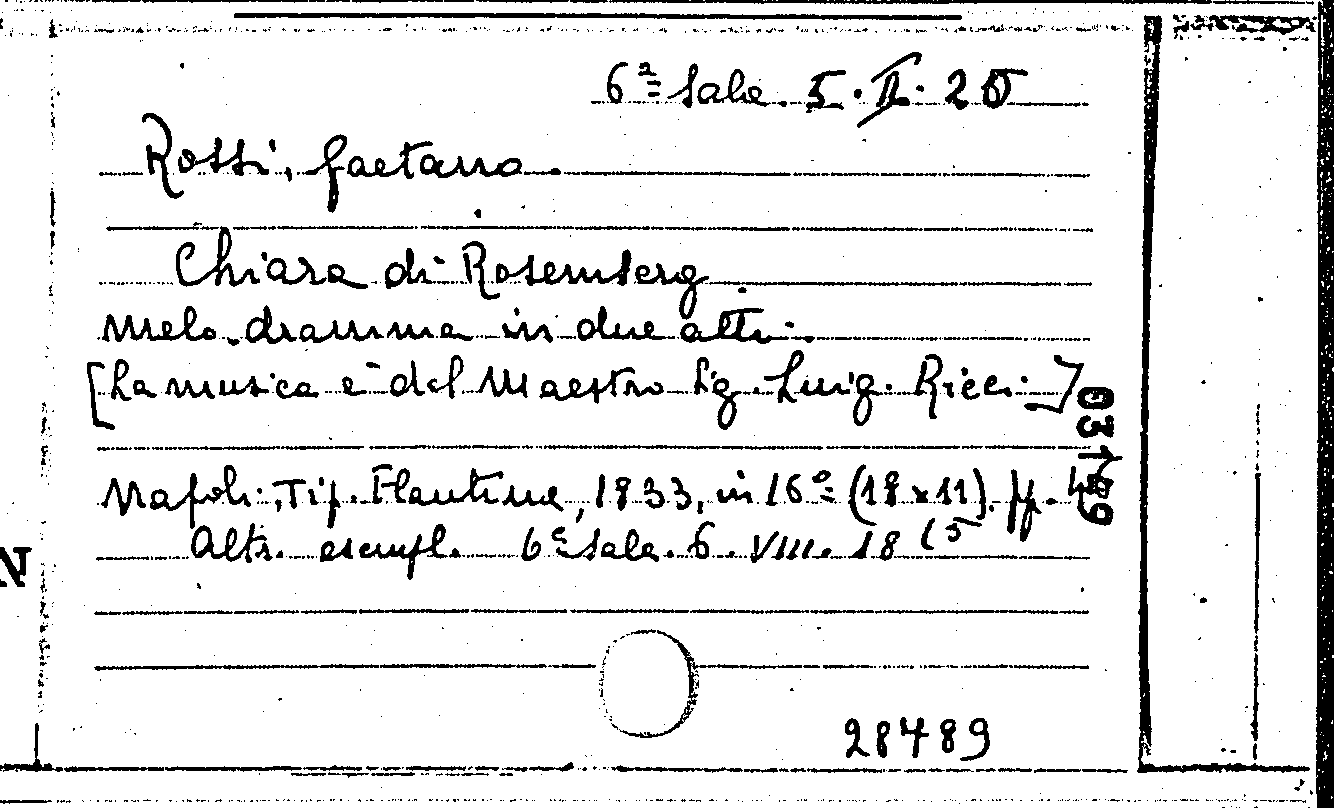 6ª Sala. 5.II.20
Rossi, Gaetano.
Chiara di Rosemberg.
Melo.dramma in due atti.
[La musica è del Maestro Sig. Luig. Ricci.]
Napoli, Tip. Flautina, 1833, in 16º (18x11). pp.
Altr. esempl. 6ª Sala. 6. VIII. 18 (5
28489
N